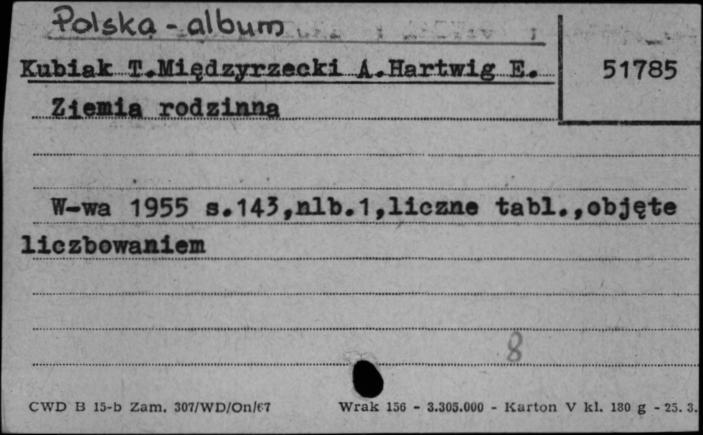 Polska - album
Kubiak T.Międzyrzecki A.Hartwig E.
51785
Ziemia rodzinna
W-wa 1955 s.143,nlb.1,liczne tabl.,objęte
liczbowaniem
8
CWD B 15-b Zam. 307/WD/On/67 Wrak 156 - 3.305.000 - Karton V kl. 180 g - 25. 3.